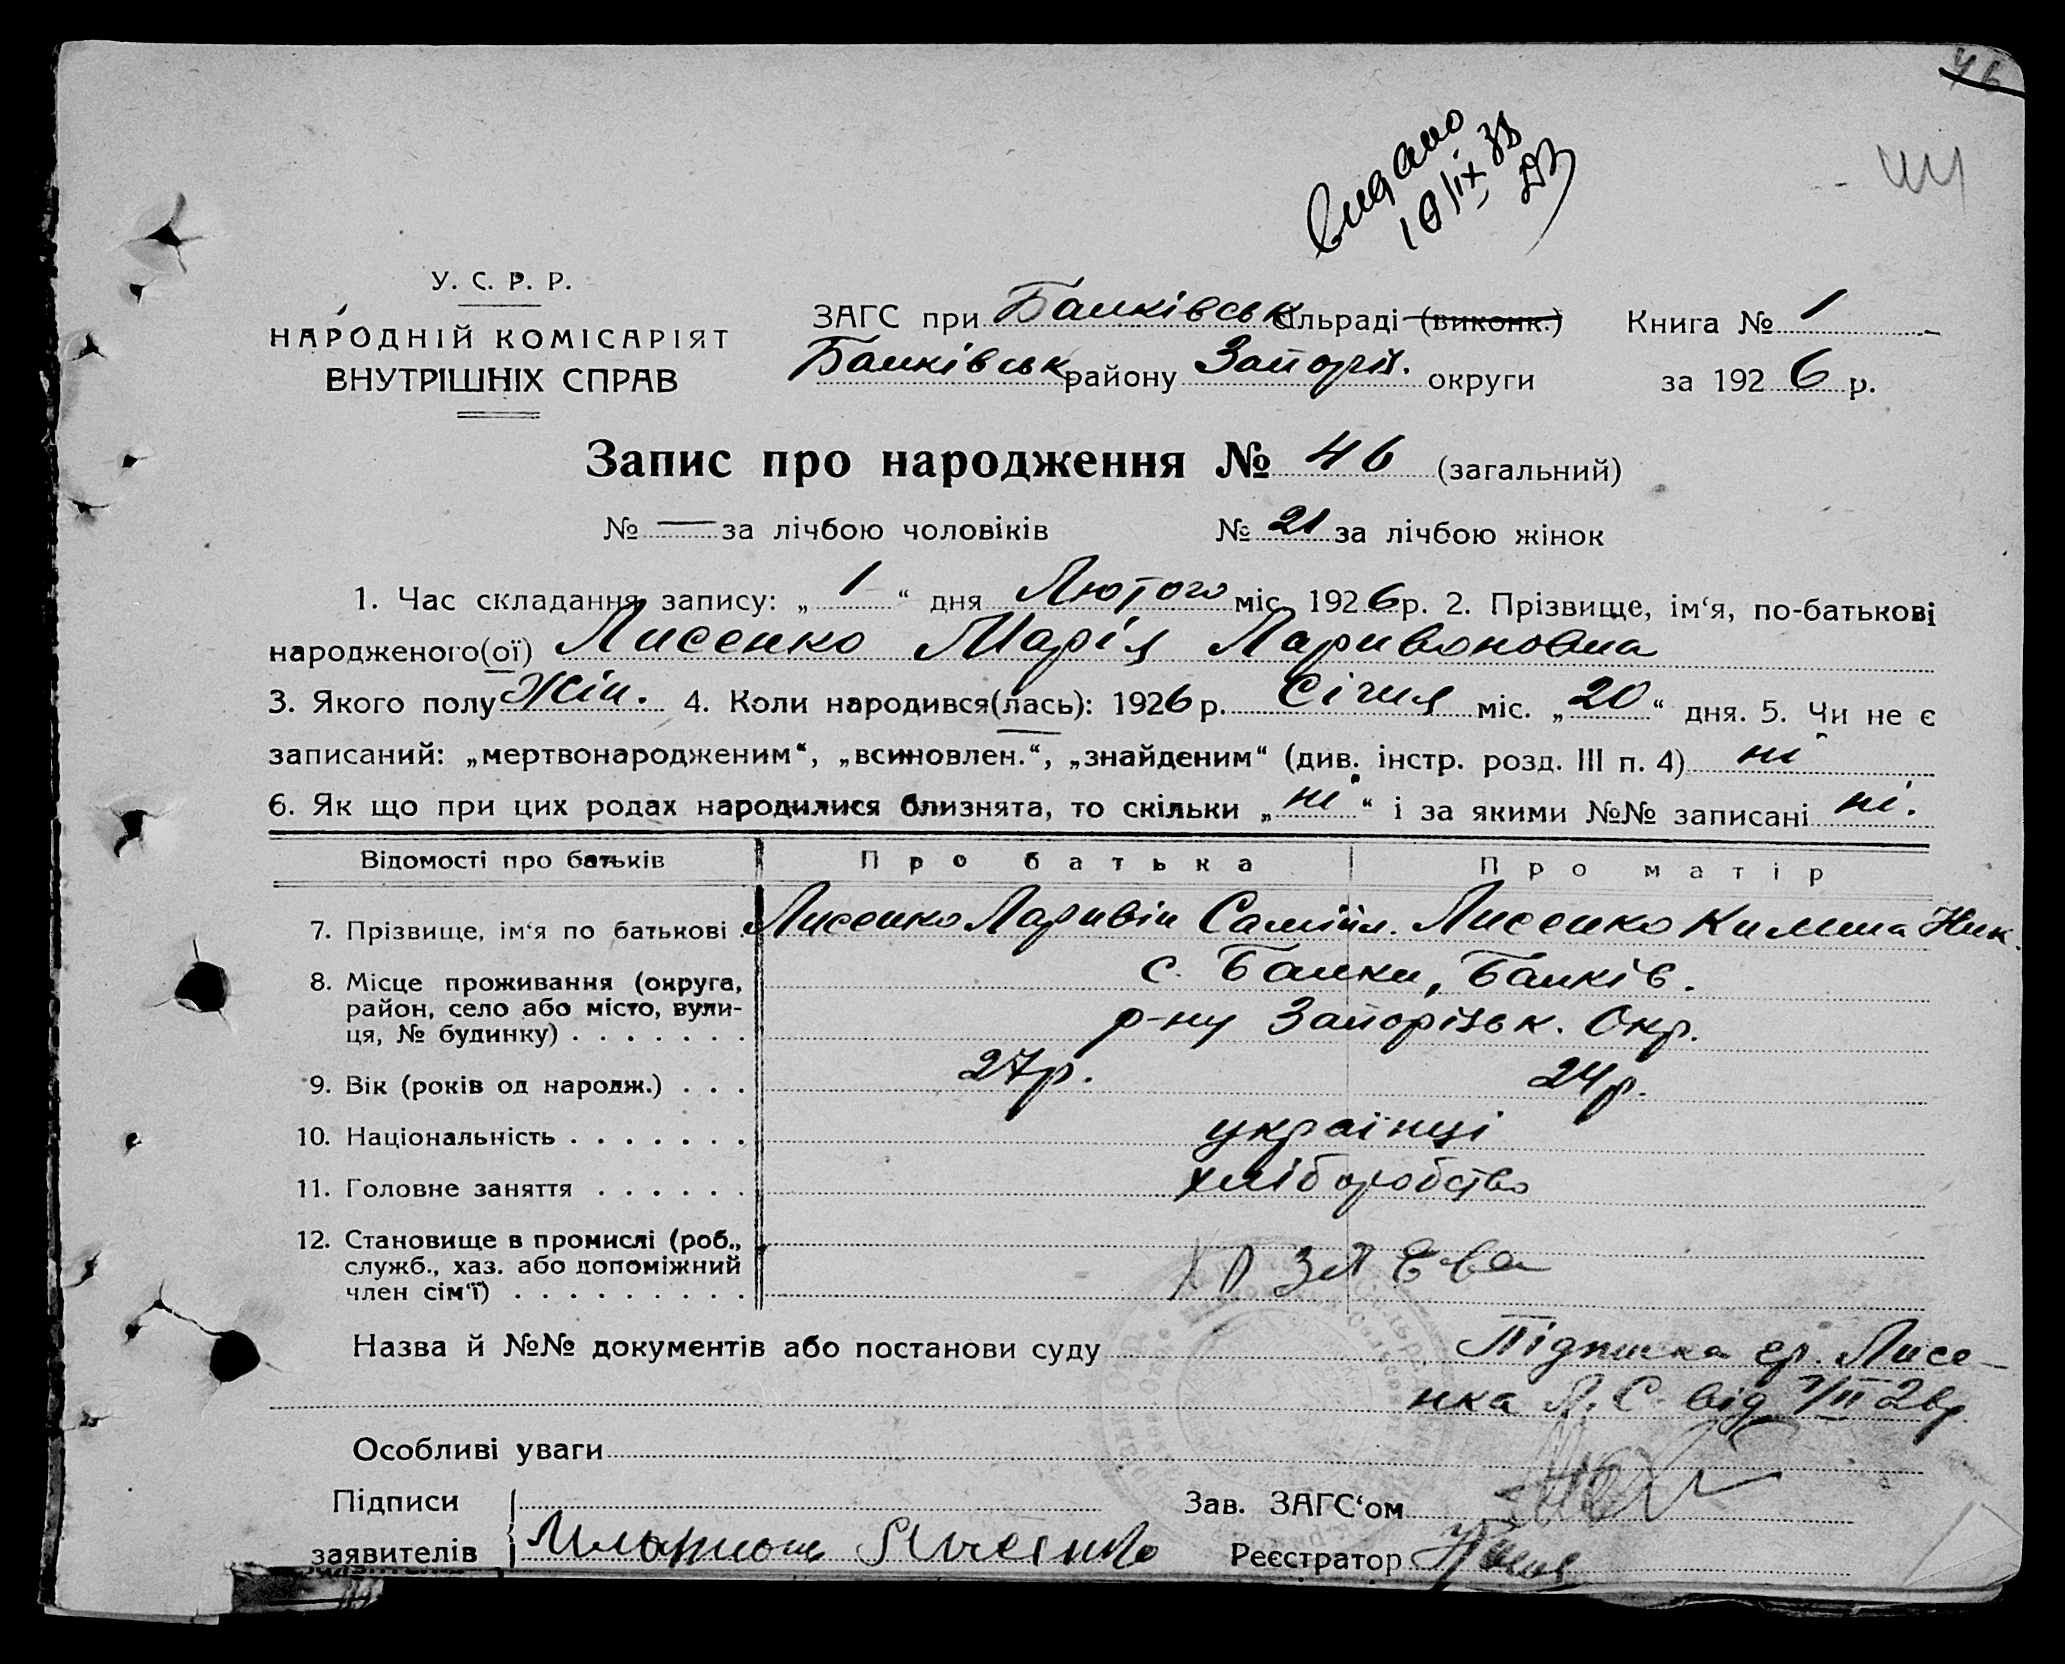 46
Видано
10/IX 38
У. С. Р. Р.
НАРОДНІЙ КОМІСАРІЯТ
ВНУТРІШНІХ СПРАВ
ЗАГС при Балківськ сільраді (виконк.) Книга № 1
Балківськ району Запоріз. округи за 1926 р.
Запис про народження № 46 (загальний)
№ — за лічбою чоловіків № 21 за лічбою жінок
1. Час складання запису: „ 1 “ дня Лютого міс. 1926 р. 2. Прізвище, ім‘я, по-батькові
народженого(ої) Лисенко Марія Ларивоновна
3. Якого полу Жін. 4. Коли народився(лась): 1926 р. Січня міс. „ 20 “ дня. 5. Чи не є
записаний: „мертвонародженим“, „всиновлен.“, „знайденим“ (див. інстр. розд. III п. 4) ні
6. Як що при цих родах народилися близнята, то скільки „ ні “ і за якими №№ записані ні.
Відомості про батьків Про батька Про матір
7. Прізвище, ім‘я по батькові . Лисенко Ларивін Самійл. Лисенко Килина Ник.
8. Місце проживання (округа, с. Балки, Балків.
район, село або місто, вули- р-ну Запорізьк. Окр.
ця, № будинку) . . . . . . .
9. Вік (років од народж.) . . . 27 р. 24 р.
10. Національність . . . . . . . українці
11. Головне заняття . . . . . . хліборобство
12. Становище в промислі (роб.,
служб., хаз. або допоміжний хозяева
член сім‘ї) . . . . . . . . .
Назва й №№ документів або постанови суду Підписка гр. Лисе-
нка Л. С. від 1/II 26 р.
Особливі уваги
Підписи Зав. ЗАГС‘ом
заявителів Иларион Лисенко Реєстратор